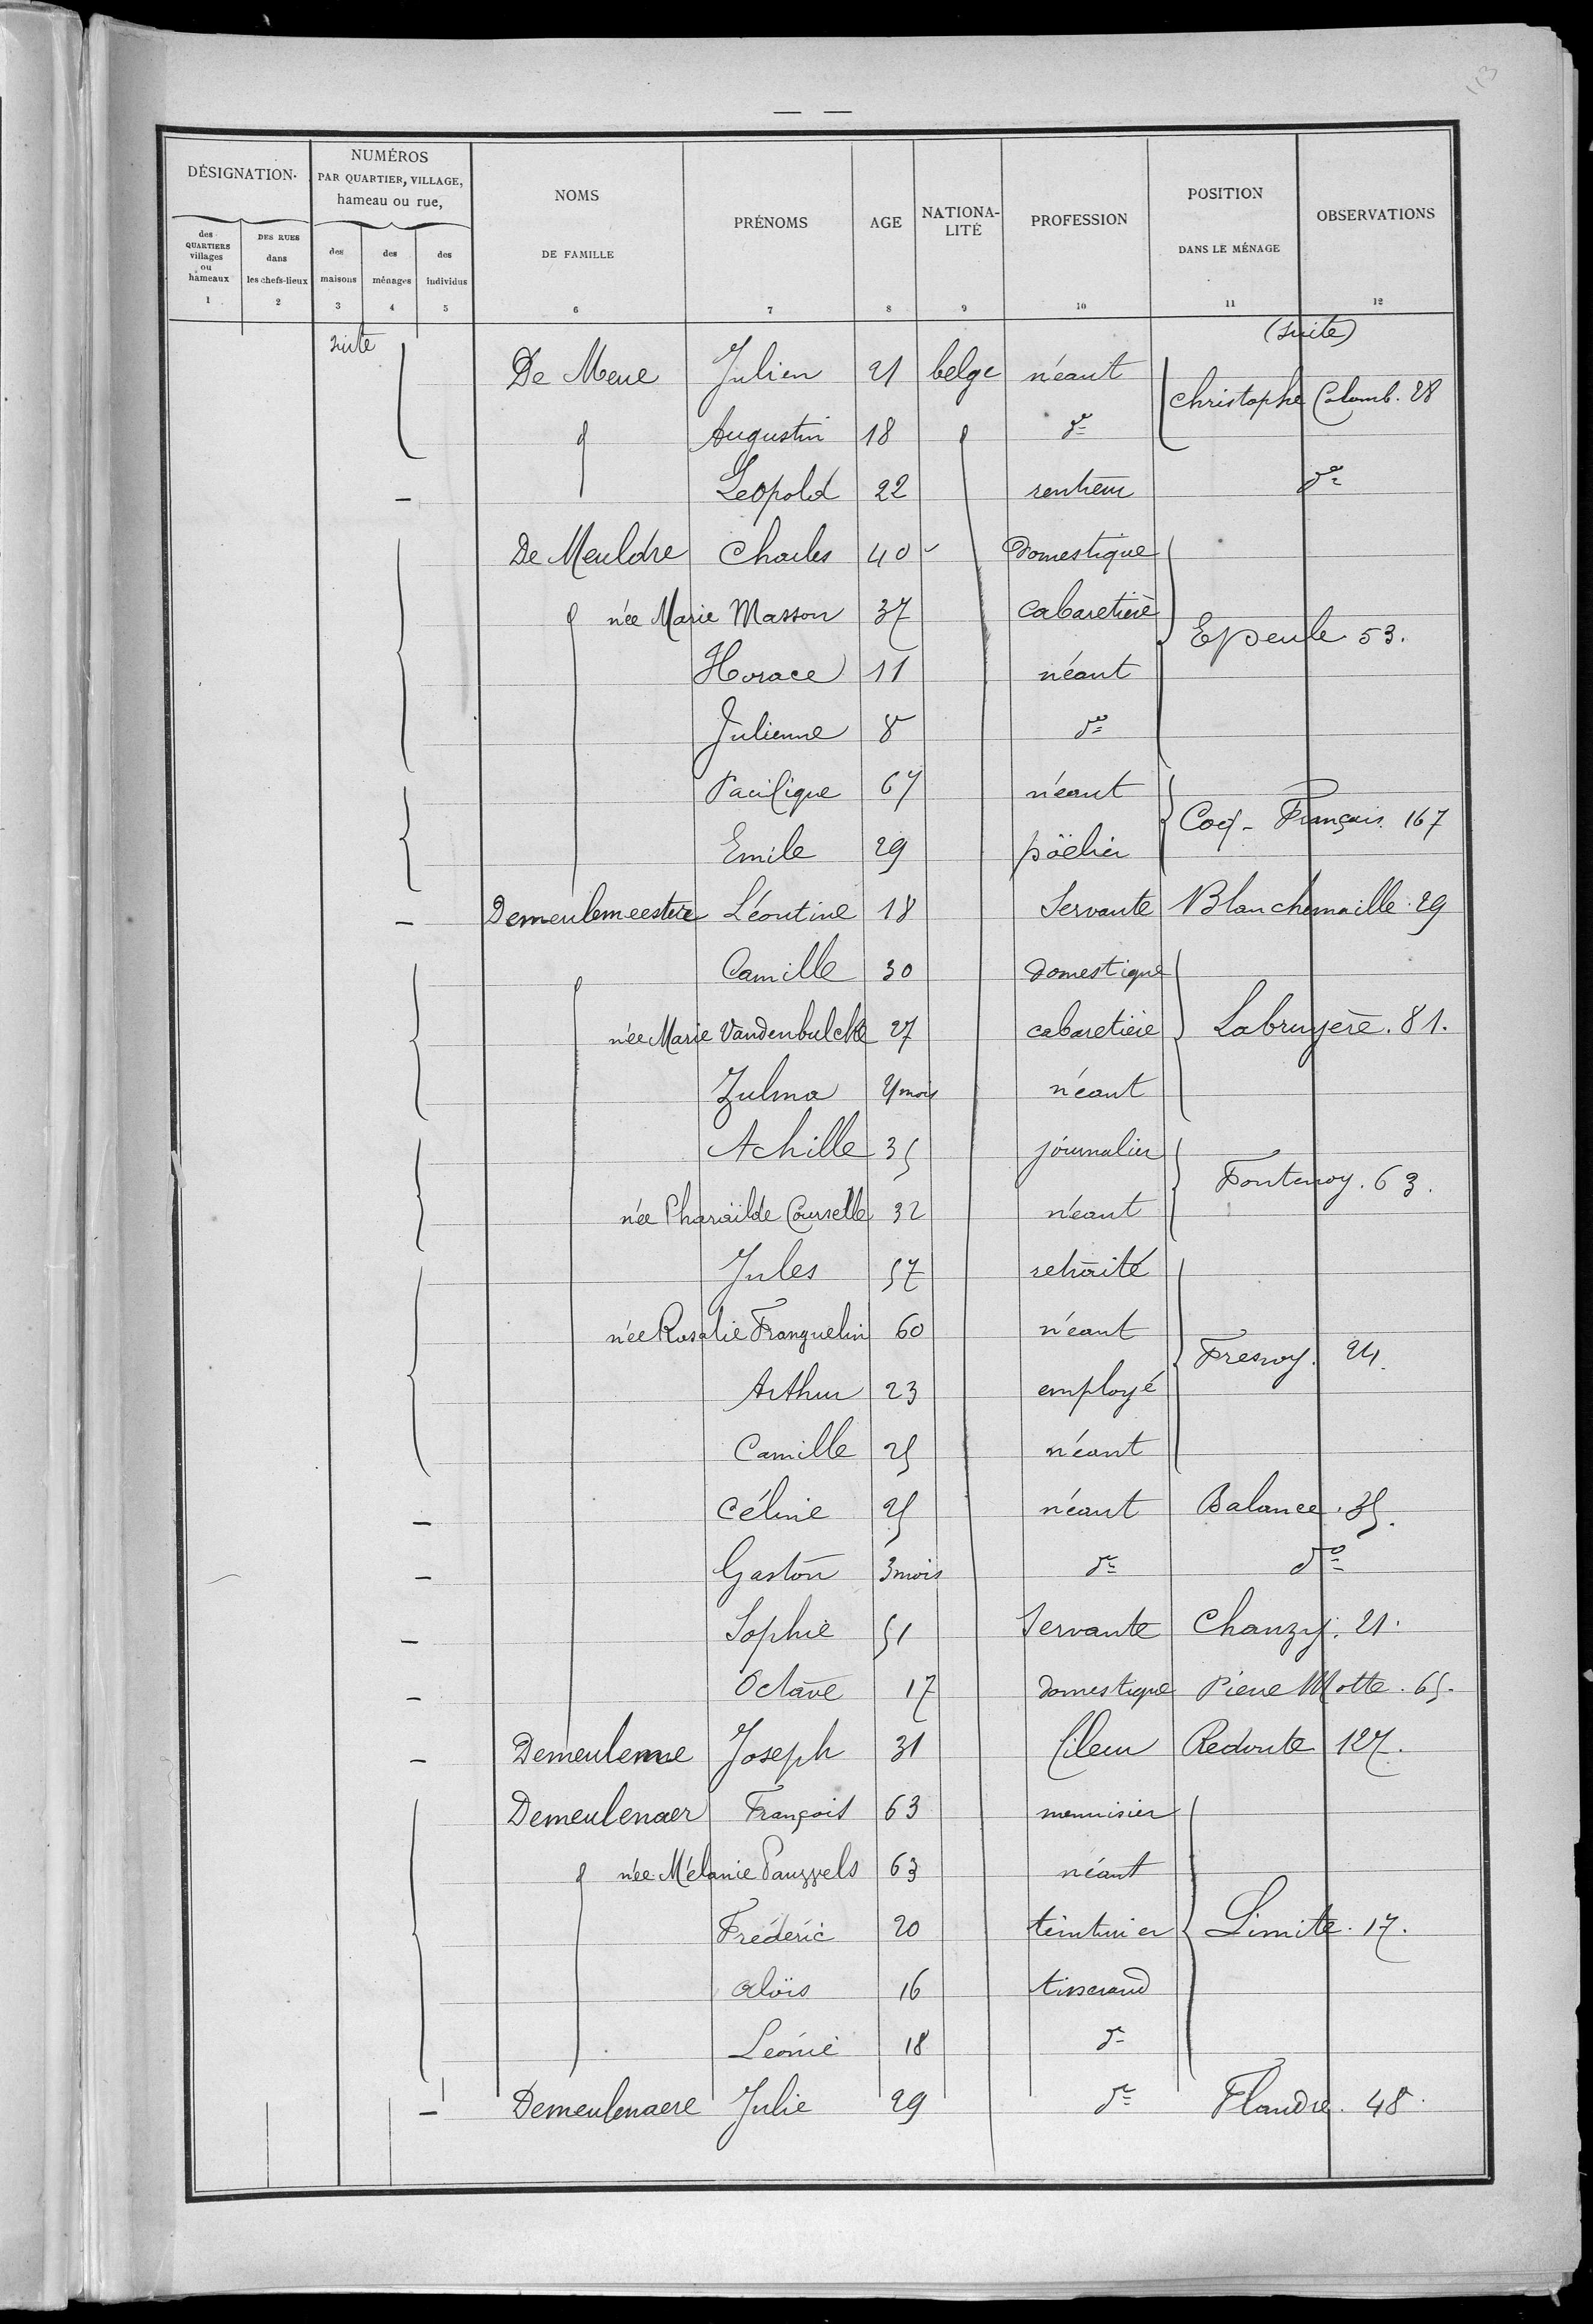 113
— —
DÉSIGNATION.
NUMÉROS
PAR QUARTIER, VILLAGE,
hameau ou rue,
NOMS
DE FAMILLE
PRÉNOMS
AGE
NATIONA-
LITÉ
PROFESSION
POSITION
DANS LE MÉNAGE
OBSERVATIONS
des
QUARTIERS
villages
ou
hameaux
DES RUES
dans
les chefs-lieux
des
maisons
des
ménages
des
individus
1 2 3 4 5 6 7 8 9 10 11 12
suite (suite)
De Meue Julien 21 belge néant Christophe Colomb. 28
Augustin 18 do
— Leopold 22 rentreur do
De Meuldre Charles 40 domestique
née Marie Masson 37 cabaretière Epeule 53.
Horace 11 néant
Julienne 8 do
Pacifique 67 néant Coq-Français. 167
Emile 29 poëlier
— Demeulemeestere Léontine 18 Servante Blanchemaille. 29
Camille 30 domestique
née Marie Vandenbulcke 27 cabaretière Labruyère. 81.
Zulma 4 mois néant
Achille 35 journalier Fontenoy. 63.
née Pharaïlde Courselle 32 néant
Jules 57 retraité
née Rosalie Franguelin 60 néant Fresnoy. 24.
Arthur 23 employé
Camille 25 néant
— Céline 25 néant Balance. 35.
— Gaston 3 mois do do
— Sophie 51 Servante Chanzy. 21.
— Octave 17 domestique Pierre Motte. 65.
— Demeulenne Joseph 31 fileur Redoute 127.
Demeulenaer François 63 menuisier
née Mélanie Pauwels 63 néant
Frédéric 20 teinturier Limite. 17.
aloïs 16 tisserand
Léonie 18 do
— Demeulenaere Julie 29 do Flandre. 48.